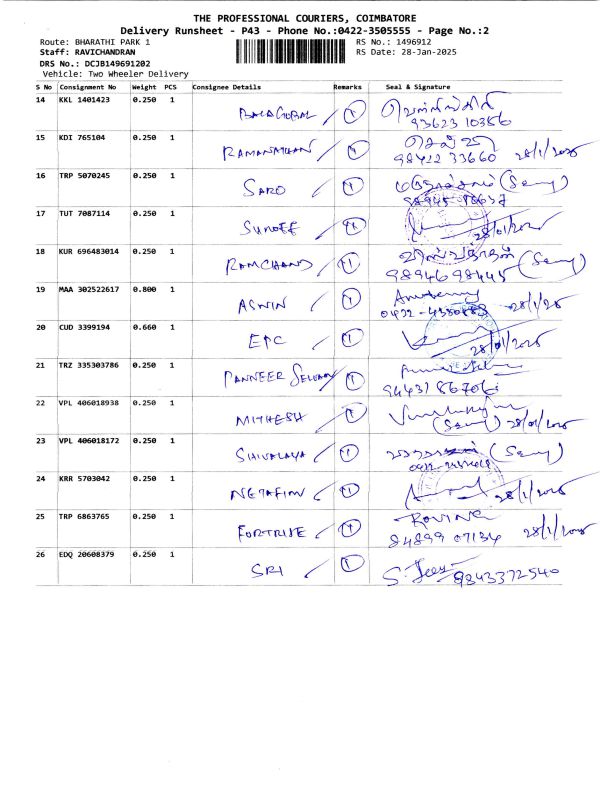 THE PROFESSIONAL COURIERS, COIMBATORE
Delivery Runsheet - P43 - Phone No.:0422-3505555 - Page No.:2
Route: BHARATHI PARK 1 RS No.: 1496912
Staff: RAVICHANDRAN RS Date: 28-Jan-2025
DRS No.: DCJB149691202
Vehicle: Two Wheeler Delivery
S No Consignment No Weight PCS Consignee Details Remarks Seal & Signature
14 KKL 1401423 0.250 1
BALAGOBAL 1
93623 10386
15 KDI 765104 0.250 1
RAMANATHAN 1
98422 33660 28/1/2025
16 TRP 5070245 0.250 1
SARO 1 (Sec)
17 TUT 7087114 0.250 1
SUNOFF 1 28/01/2025
18 KUR 696483014 0.250 1
RAMCHAND 1
98946 98445
19 MAA 302522617 0.800 1
ASWIN 1
0422-4380883 28/1/25
20 CUD 3399194 0.660 1
EPC 1 28/01/2025
21 TRZ 335303786 0.250 1
PANNEER SELVAM 1
22 VPL 406018938 0.250 1
MITHESH 1 28/01/2025
23 VPL 406018172 0.250 1
SHIVALAYA 1
24 KRR 5703042 0.250 1
NETAFIM 1 28/1/2025
25 TRP 6863765 0.250 1
FORTRISE 1
84899 07134 28/1/2025
26 EDQ 20608379 0.250 1
SRI 1
9843372540